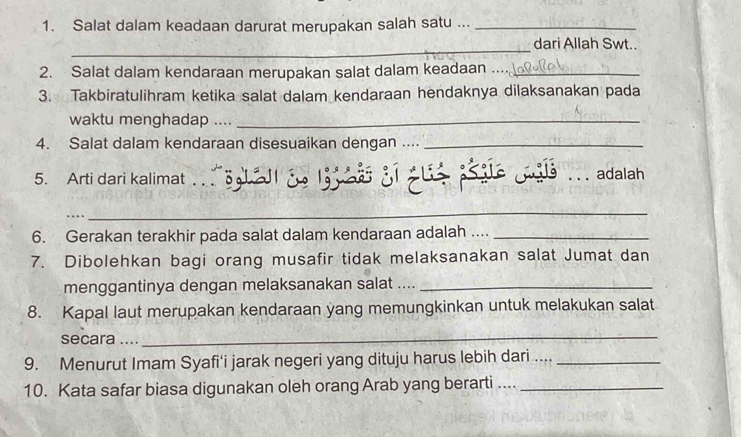 1. Salat dalam keadaan darurat merupakan salah satu ... ____________
____________ dari Allah Swt..
2. Salat dalam kendaraan merupakan salat dalam keadaan .... darurat
3. Takbiratulihram ketika salat dalam kendaraan hendaknya dilaksanakan pada
waktu menghadap .... ____________
4. Salat dalam kendaraan disesuaikan dengan .... ____________
5. Arti dari kalimat ... فَلَيْسَ عَلَيْكُمْ جُنَاحٌ اَنْ تَقْصُرُوْا مِنَ الصَّلٰوةِ ... adalah
.... ____________
6. Gerakan terakhir pada salat dalam kendaraan adalah .... ____________
7. Dibolehkan bagi orang musafir tidak melaksanakan salat Jumat dan
menggantinya dengan melaksanakan salat .... ____________
8. Kapal laut merupakan kendaraan yang memungkinkan untuk melakukan salat
secara .... ____________
9. Menurut Imam Syafi'i jarak negeri yang dituju harus lebih dari .... ____________
10. Kata safar biasa digunakan oleh orang Arab yang berarti .... ____________